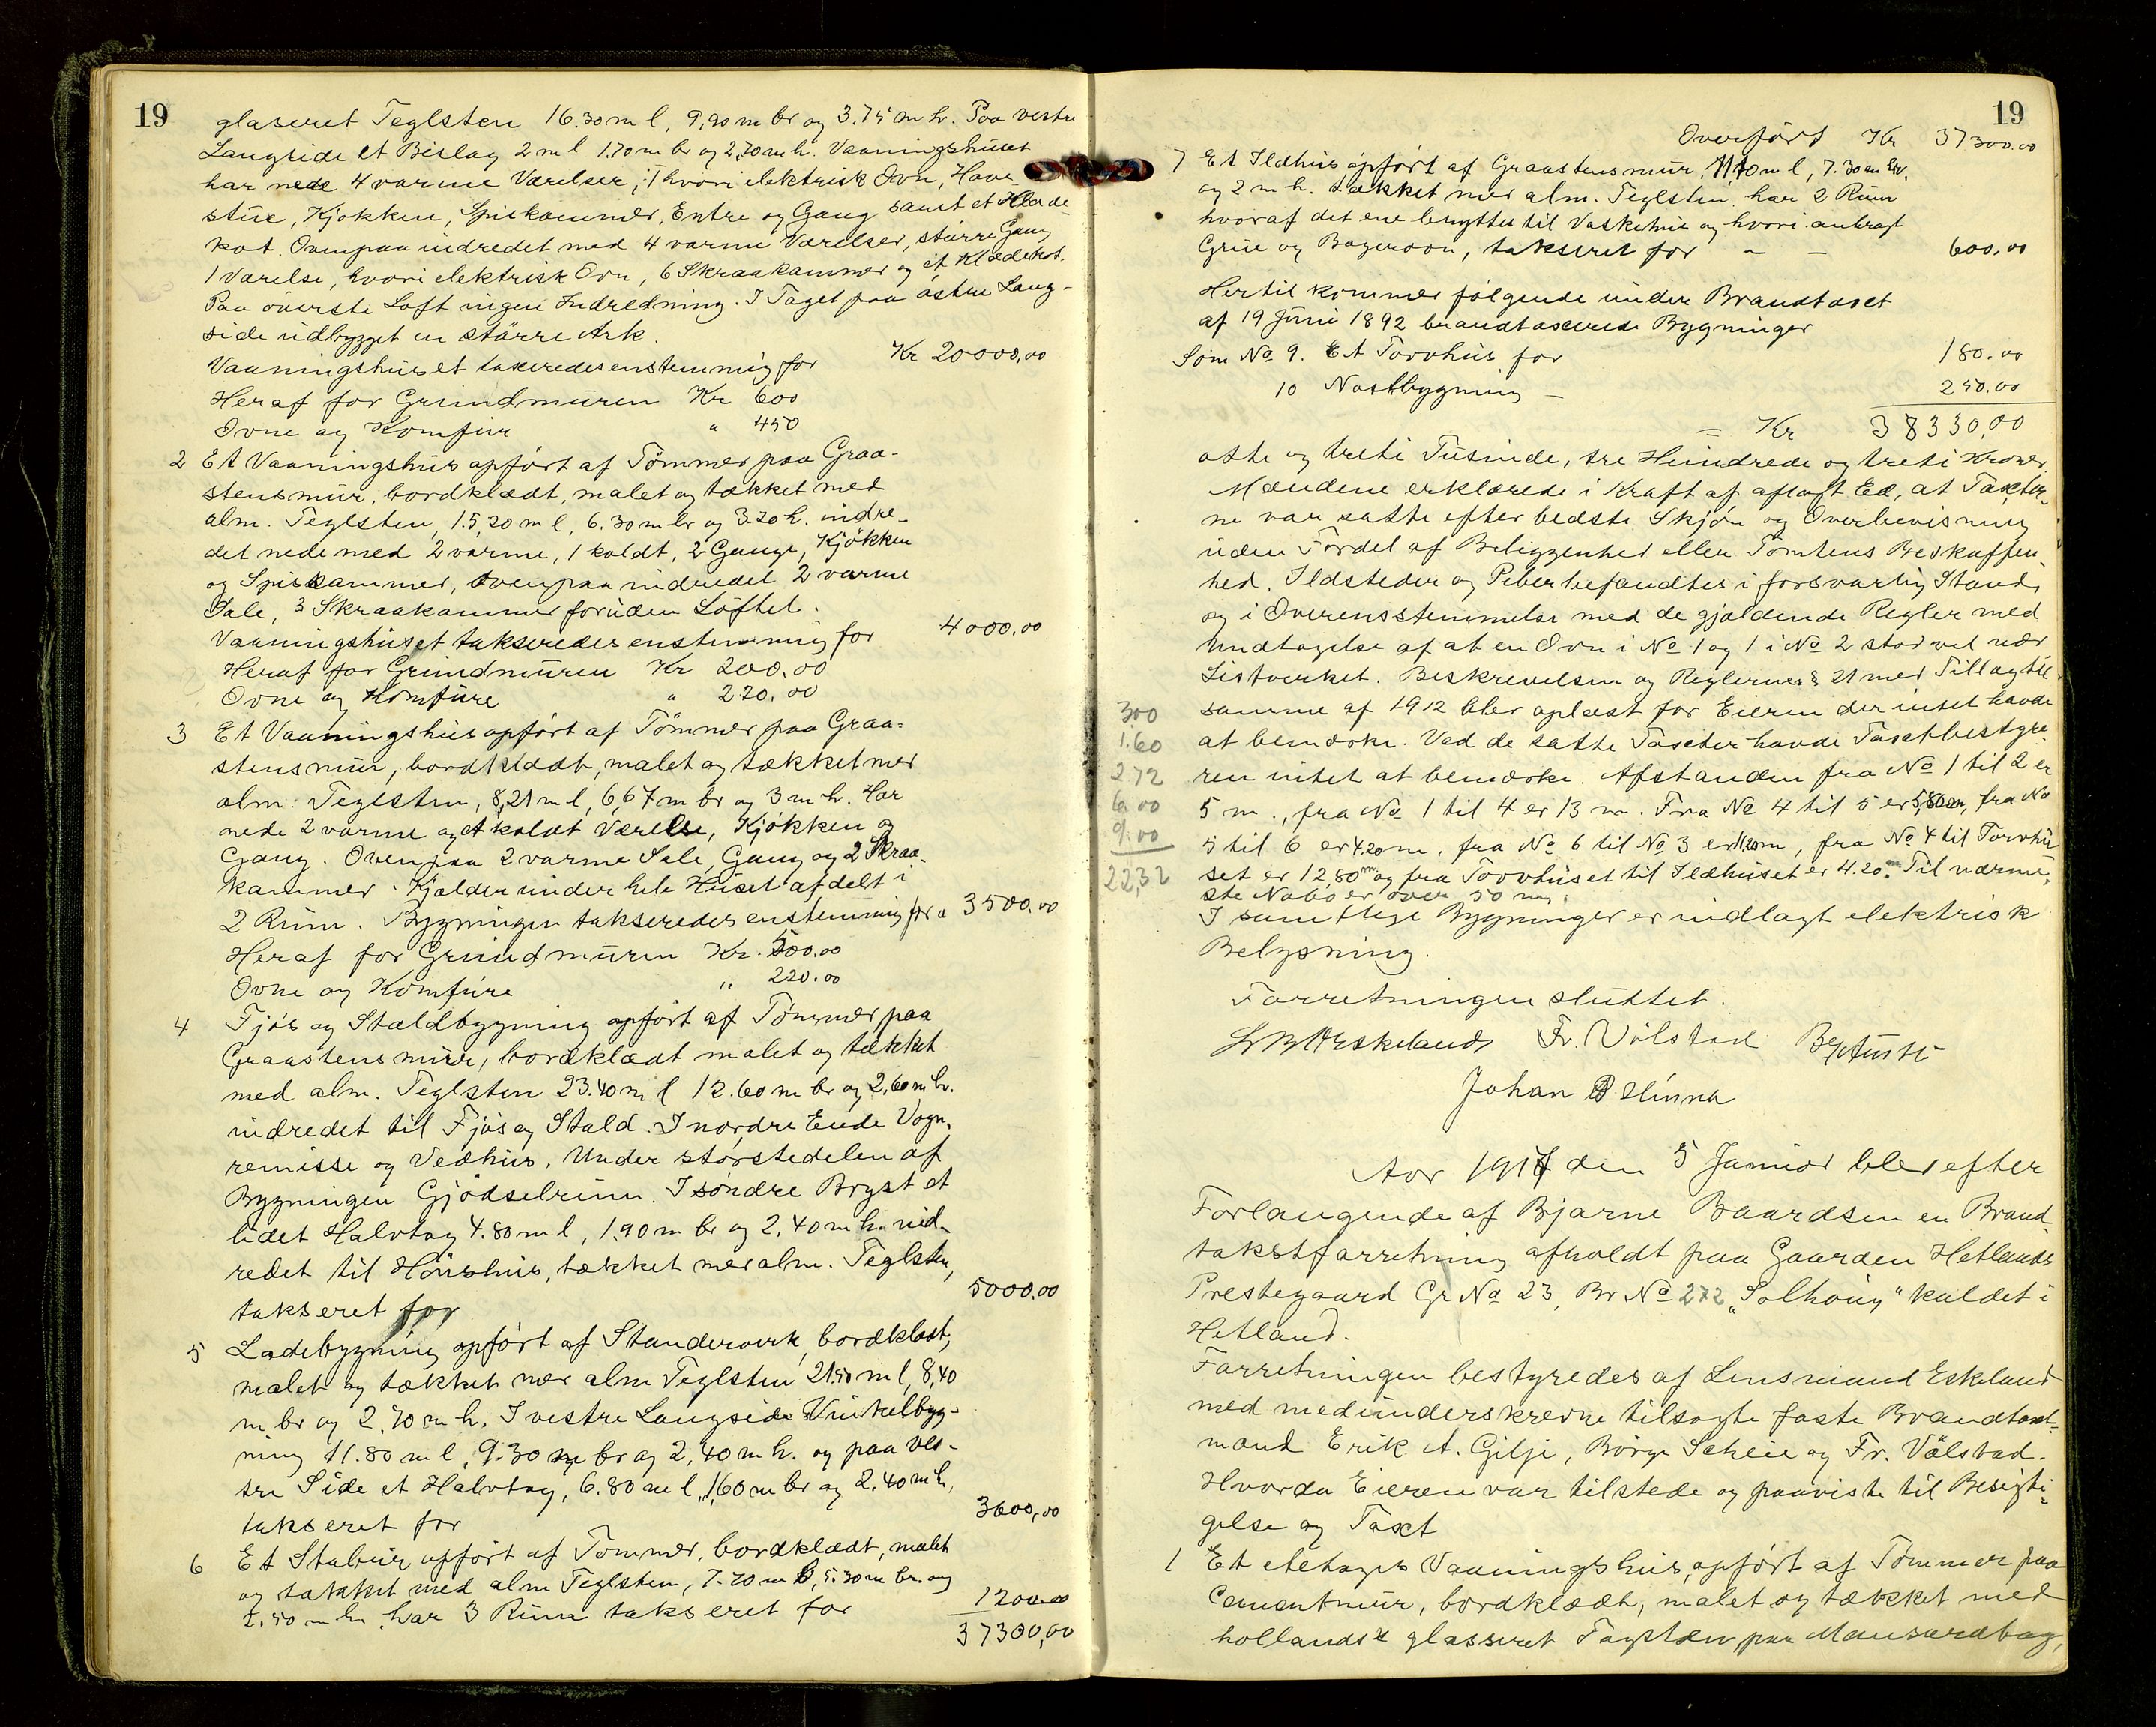 19
glaseret Teglsten 16.30 m l, 9,20 m br og 3.75 m h. Paa vestre
Langside et Bislag 2 m l 1.70 m br og 2,70 m h. Vaaningshuset
har nede 4 varme Værelser, i 1 hvori elektrisk Ovn, Have-
stue, Kjøkken, Spiskammer, Entre og Gang samt et Klæde-
kot. Ovenpaa indredet med 4 varme Værelser, større Gang
1 Værelse, hvori elektrisk Ovn, 6 Skraakammer og et Klædekot.
Paa øverste Loft ingen Indredning. I Taget paa østre Lang-
side udbygget en større Ark.
Vaaningshuset taxeredes enstemmig for Kr 20000,00
Heraf for Grundmuren Kr 600
Ovne og Komfur " 450
2 Et Vaaningshus opført af Tømmer paa Graa-
stensmur, bordklædt, malet og tækket med
alm. Teglsten, 15,20 m l, 6.30 m br og 3.20 h. indre-
det nede med 2 varme, 1 koldt, 2 Gange, Kjøkken
og Spiskammer, ovenpaa indredet 2 varme
Sale, 3 Skraakammer foruden Loftet.
Vaaningshuset takseredes enstemmig for 4000.00
Heraf for Grundmuren Kr 200.00
Ovne og Komfure " 220.00
3 Et Vaaningshus opført af Tømmer paa Graa-
stensmur, bordklædt, malet og tækket med
alm. Teglsten, 8,21 m l, 6,67 m br og 3 m h. Har
nede 2 varme og et koldt Værelse, Kjøkken og
Gang. Ovenpaa 2 varme Sale, Gang og 2 Skraa-
kammer. Kjælder under hele Huset afdelt i
2 Rum. Bygningen takseredes enstemmig for 3500.00
Heraf for Grundmuren Kr. 500.00
Ovne og Komfure " 220.00
4 Fjøs og Staldbygning opført af Tømmer paa
Graastensmur, bordklædt malet og tækket
med alm. Teglsten 23.40 m l 12.60 m br og 2,60 m h.
indredet til Fjøs og Stald. I nordre Ende Vogn-
remisse og Vedhus. Under størstedelen af
Bygningen Gjødselrum. I søndre Bryst et
lidet Halvtag 4.80 m l, 1.90 m br og 2,40 m h. ind-
redet til Hønshus, tækket med alm. Teglsten,
takseret for 5000.00
5 Ladebygning opført af Standerverk, bordklædt,
malet og tækket med alm Teglsten 21.50 m l, 8,40
m br og 2.70 m h. I vestre Langside Vinkelbyg-
ning 11.80 m l, 9.30 m br og 2,40 m h. og paa ves-
tre Side et Halvtag, 6.80 m l, 1,60 m br og 2.40 m h,
takseret for 3600,00
6 Et Stabur opført af Tømmer, bordklædt, malet
og tækket med alm Teglsten, 7.20 m l, 5.30 m br. og
2.50 m h. har 3 Rum takseret for 1200.00
37300,00
19
Overført Kr 37300.00
7 Et Ildhus opført af Graastensmur, 11.10 m l, 7.30 m br.
og 2 m h. tækket med alm. Teglsten, har 2 Rum
hvoraf det ene benyttes til Vaskehus og hvori anbragt
Grue og Bagerovn, takseret for - - 600.00
Hertil kommer følgende under Brandtaxt
af 19 Juni 1892 brandtaxerede Bygninger
Som No 9. Et Torvhus for 180.00
10 Nøstbygning - 250.00
= Kr 38330,00
otte og treti Tusinde, tre Hundrede og treti Kroner.
Mændene erklærede i Kraft af aflagt Ed, at Taxter-
ne var satte efter bedste Skjøn og Overbevisning
uden Fordel af Beliggenhed eller Tomtens Beskaffen-
hed. Ildsteder og Piber befandtes i forsvarlig Stand,
og i Overensstemmelse med de gjældende Regler med
Undtagelse af at en Ovn i No 1 og 1 i No 2 stod vel nær
Listverket. Beskrivelsen og Reglernes § 21 med Tillæg til
samme af 1912 blev oplæst for Eieren der intet havde
at bemærke. Ved de satte Taxter havde Taxtbestyre-
ren intet at bemærke. Afstanden fra No 1 til 2 er
5 m., fra No 1 til 4 er 13 m. Fra No 4 til 5 er 5,80 m, fra No
5 til 6 er 4.20 m, fra No 6 til No 3 er 11.20 m, fra No 4 til Torvhu-
set er 12,80 m og fra Torvhuset til Ildhuset er 4.20 m. Til nærme-
ste Nabo er over 50 m.
I samtlige Bygninger er indlagt elektrisk
Belysning.
300
1.60
272
6.00
9.00
22,32
Forretningen sluttet.
Eskeland Fr. Vølstad
Johan Hinna
Aar 1917 den 5 Januar blev efter
Forlangende af Bjarne Baardsen en Brand-
takstforretning afholdt paa Gaarden Hetlands
Prestegaard Gr No 23, Br No 272 "Solhaug" kaldet i
Hetland.
Forretningen bestyredes af Lensmand Eskeland
med medunderskrevne tilsagte faste Brandtaxt-
mænd Erik A. Gilje, Børge Scheie og Fr. Vølstad.
Hvorda Eieren var tilstede og paaviste til Besigti-
gelse og Taxt
1 Et etetages Vaaningshus, opført af Tømmer paa
Cementmur, bordklædt, malet og tækket med
hollandsk glasseret Tagsten paa Mansardtag,